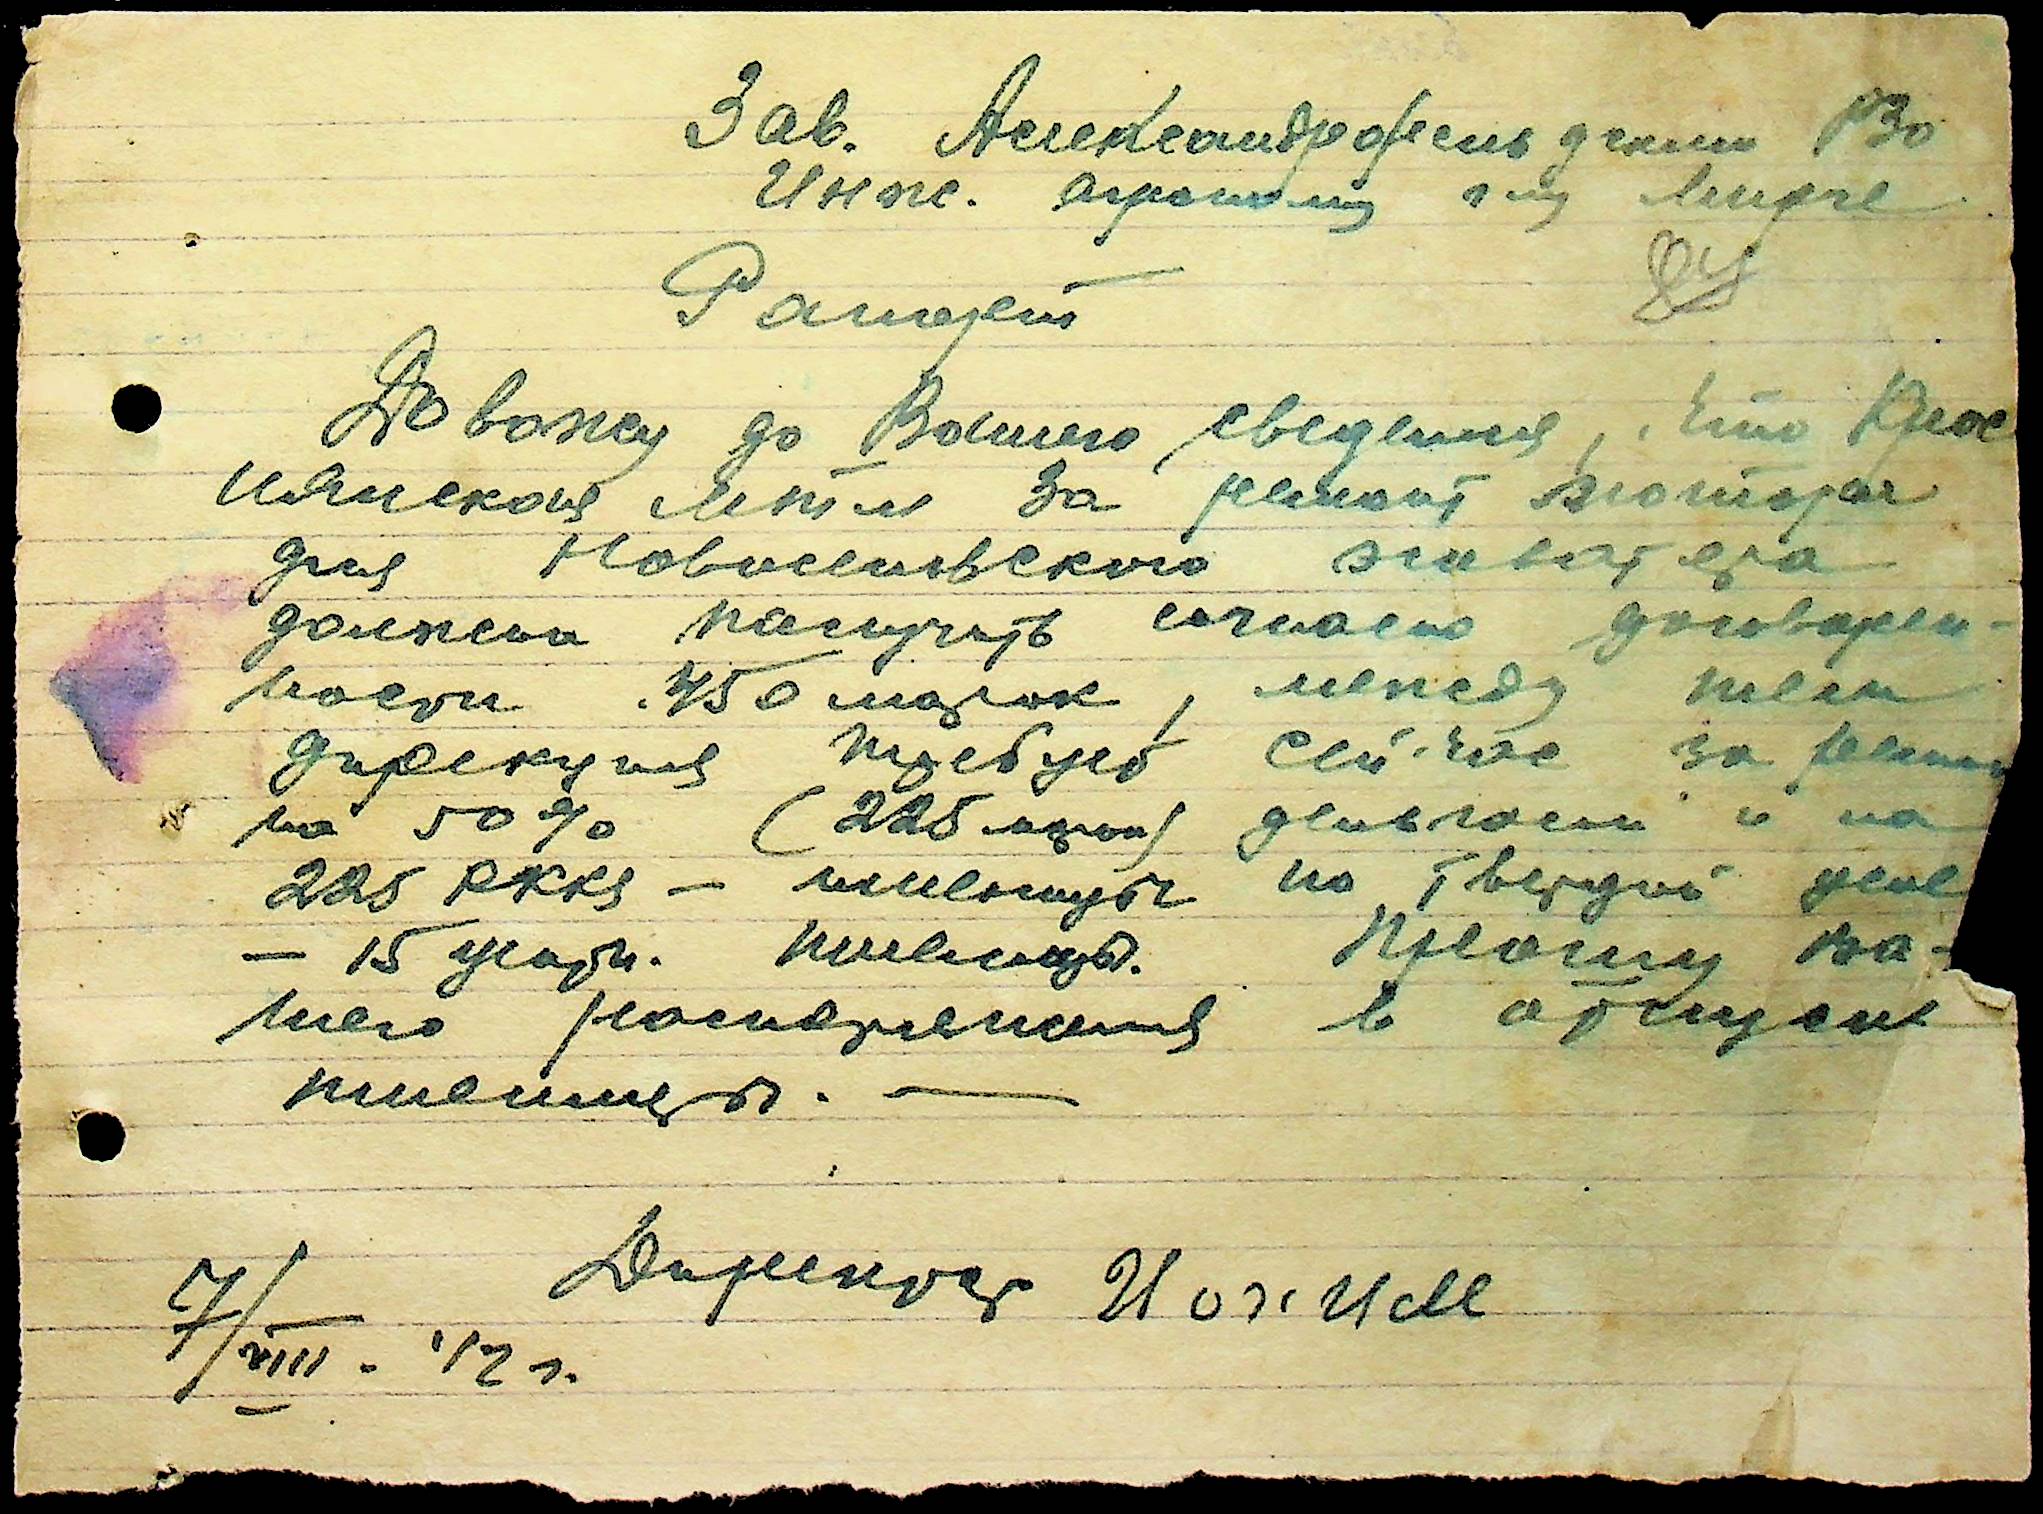 Зав. Александрофельдским РЗо
Инж. агроному г-ну
Рапорт
Довожу до Вашего сведения, что Крос
нянская МТМ за ремонт мотора
для Новоселовского
должна получить согласно договорен-
ности 450 марок, между тем
дирекция требует сейчас за ремонт
на 50% (225 марок) деньгами и на
225 RKKS – пшеницы по твердой цене
– 15 центн. пшеницы. Прошу Ва-
шего распоряжения в отпуске
пшеницы. —
Директор
7/VIII. 42 г.